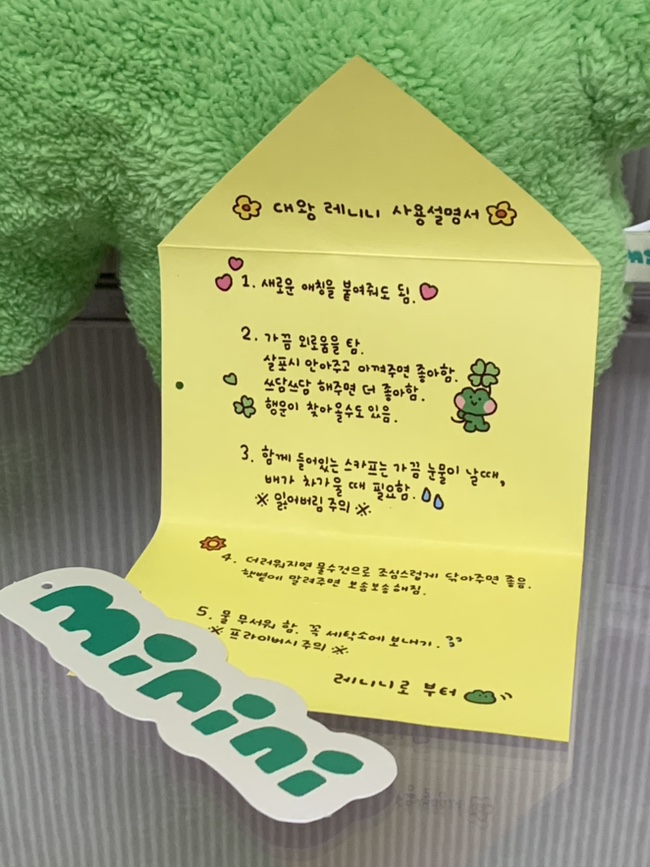 대왕 레니니 사용설명서
1. 새로운 애칭을 붙여줘도 됨.
2. 가끔 외로움을 탐.
살포시 안아주고 아껴주면 좋아함.
쓰담쓰담 해주면 더 좋아함.
행운이 찾아올수도 있음.
3. 함께 들어있는 스카프는 가끔 눈물이 날때,
배가 차가울 때 필요함.
※ 잃어버림 주의 ※
4. 더러워지면 물수건으로 조심스럽게 닦아주면 좋음.
햇볕에 말려주면 보송보송해짐.
5. 물 무서워 함. 꼭 세탁소에 보내기.
※ 프라이버시 주의 ※
레니니로 부터
minini